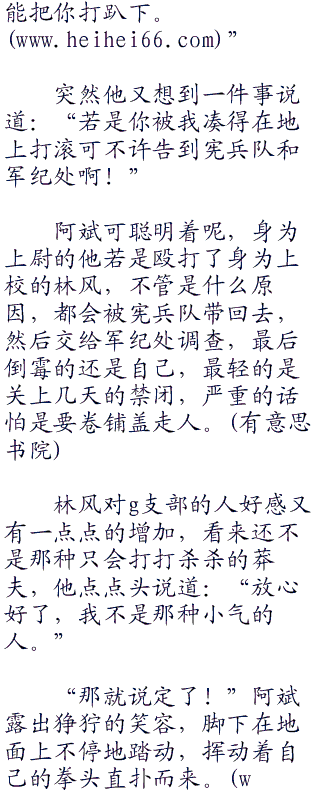 能把你打趴下。
(www.heihei66.com)”
突然他又想到一件事说
道：“若是你被我凑得在地
上打滚可不许告到宪兵队和
军纪处啊！”
阿斌可聪明着呢，身为
上尉的他若是殴打了身为上
校的林风，不管是什么原
因，都会被宪兵队带回去，
然后交给军纪处调查，最后
倒霉的还是自己，最轻的是
关上几天的禁闭，严重的话
怕是要卷铺盖走人。(有意思
书院)
林风对g支部的人好感又
有一点点的增加，看来还不
是那种只会打打杀杀的莽
夫，他点点头说道：“放心
好了，我不是那种小气的
人。”
“那就说定了！”阿斌
露出狰狞的笑容，脚下在地
面上不停地踏动，挥动着自
己的拳头直扑而来。(w